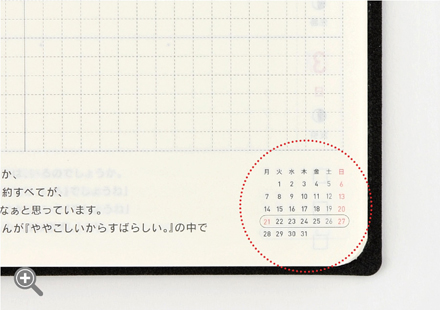 か、
約すべてが、
なぁと思っています。
んが『ややこしいからすばらしい。』の中で
月 火 水 木 金 土 日
1 2 3 4 5 6
7 8 9 10 11 12 13
14 15 16 17 18 19 20
21 22 23 24 25 26 27
28 29 30 31